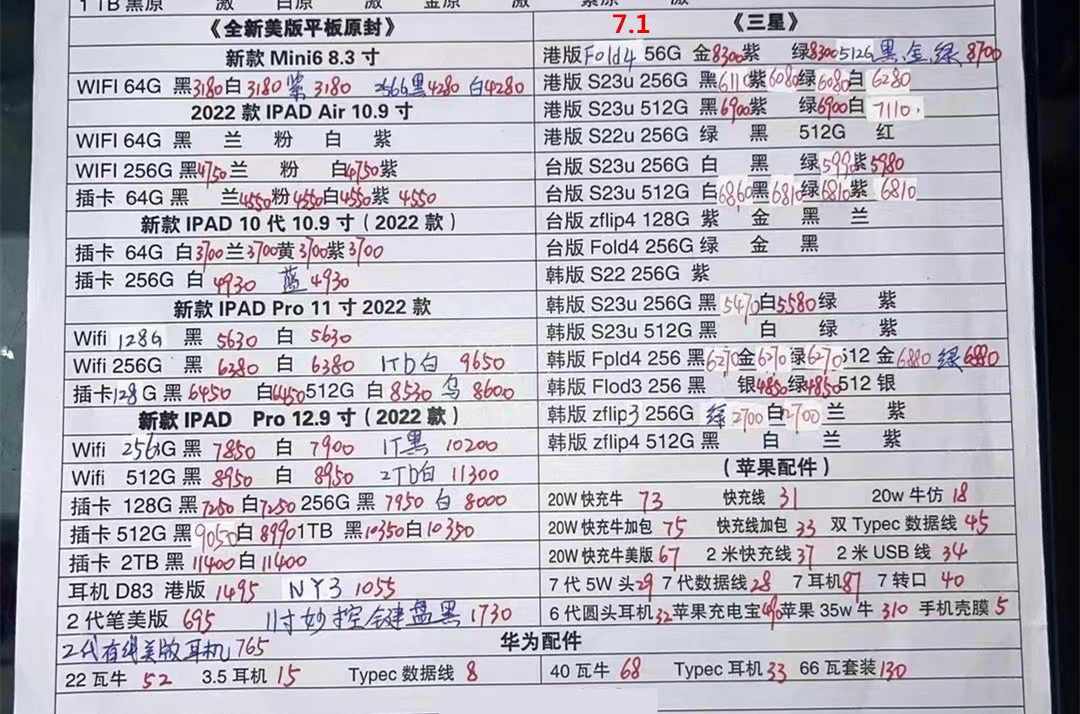 1 TB 黑原 激 白原 激 金原 激 紫原 激
《全新美版平板原封》
新款 Mini6 8.3 寸
WIFI 64G 黑3180白3180紫3180 256G黑4280 白4280
2022 款 IPAD Air 10.9 寸
WIFI 64G 黑 兰 粉 白 紫
WIFI 256G 黑4750兰 粉 白4750紫
插卡 64G 黑 兰4550粉4550白4550紫 4550
新款 IPAD 10 代 10.9 寸(2022 款)
插卡 64G 白3700兰3700黄3700紫3700
插卡 256G 白 4930 蓝 4930
新款 IPAD Pro 11 寸 2022 款
Wifi 128G 黑 5630 白 5630
Wifi 256G 黑 6380 白 6380 1TD白 9650
插卡128 G 黑 6450 白6450 512G 白 8530 乌 8600
新款 IPAD Pro 12.9 寸(2022 款)
Wifi 256G 黑 7850 白 7900 1T黑 10200
Wifi 512G 黑 8950 白 8950 2TD白 11300
插卡 128G 黑7250白7250 256G 黑 7950 白 8000
插卡 512G 黑9050白8990 1TB 黑10350白10350
插卡 2TB 黑11400白11400
耳机 D83 港版 1495 NY3 1055
2 代笔美版 695 11寸妙控键盘黑 1730
2代有线美版耳机 765
7.1 《三星》
港版Fold4 56G 金8300紫 绿8300 512G黑、金、绿 8700
港版 S23u 256G 黑6110紫6080绿6080白 6280
港版 S23u 512G 黑6900紫 绿6900白 7110
港版 S22u 256G 绿 黑 512G 红
台版 S23u 256G 白 黑 绿5990紫5980
台版 S23u 512G 白6860黑6810绿6810紫 6810
台版 zflip4 128G 紫 金 黑 兰
台版 Fold4 256G 绿 金 黑
韩版 S22 256G 紫
韩版 S23u 256G 黑 5470白5580绿 紫
韩版 S23u 512G 黑 白 绿 紫
韩版 Fpld4 256 黑6270金6270绿6270 512 金6880 绿6880
韩版 Flod3 256 黑 银4850绿4850 512 银
韩版 zflip3 256G 绿2700白2700 兰 紫
韩版 zflip4 512G 黑 白 兰 紫
(苹果配件)
20W 快充牛 73 快充线 31 20w 牛仿 18
20W 快充牛加包 75 快充线加包 33 双 Typec 数据线 45
20W 快充牛美版 67 2 米快充线 37 2 米 USB 线 34
7 代 5W 头29 7 代数据线28 7 耳机87 7 转口 40
6 代圆头耳机32苹果充电宝490苹果 35w 牛 310 手机壳膜 5
华为配件
22 瓦牛 52 3.5 耳机 15 Typec 数据线 8
40 瓦牛 68 Typec 耳机33 66 瓦套装130